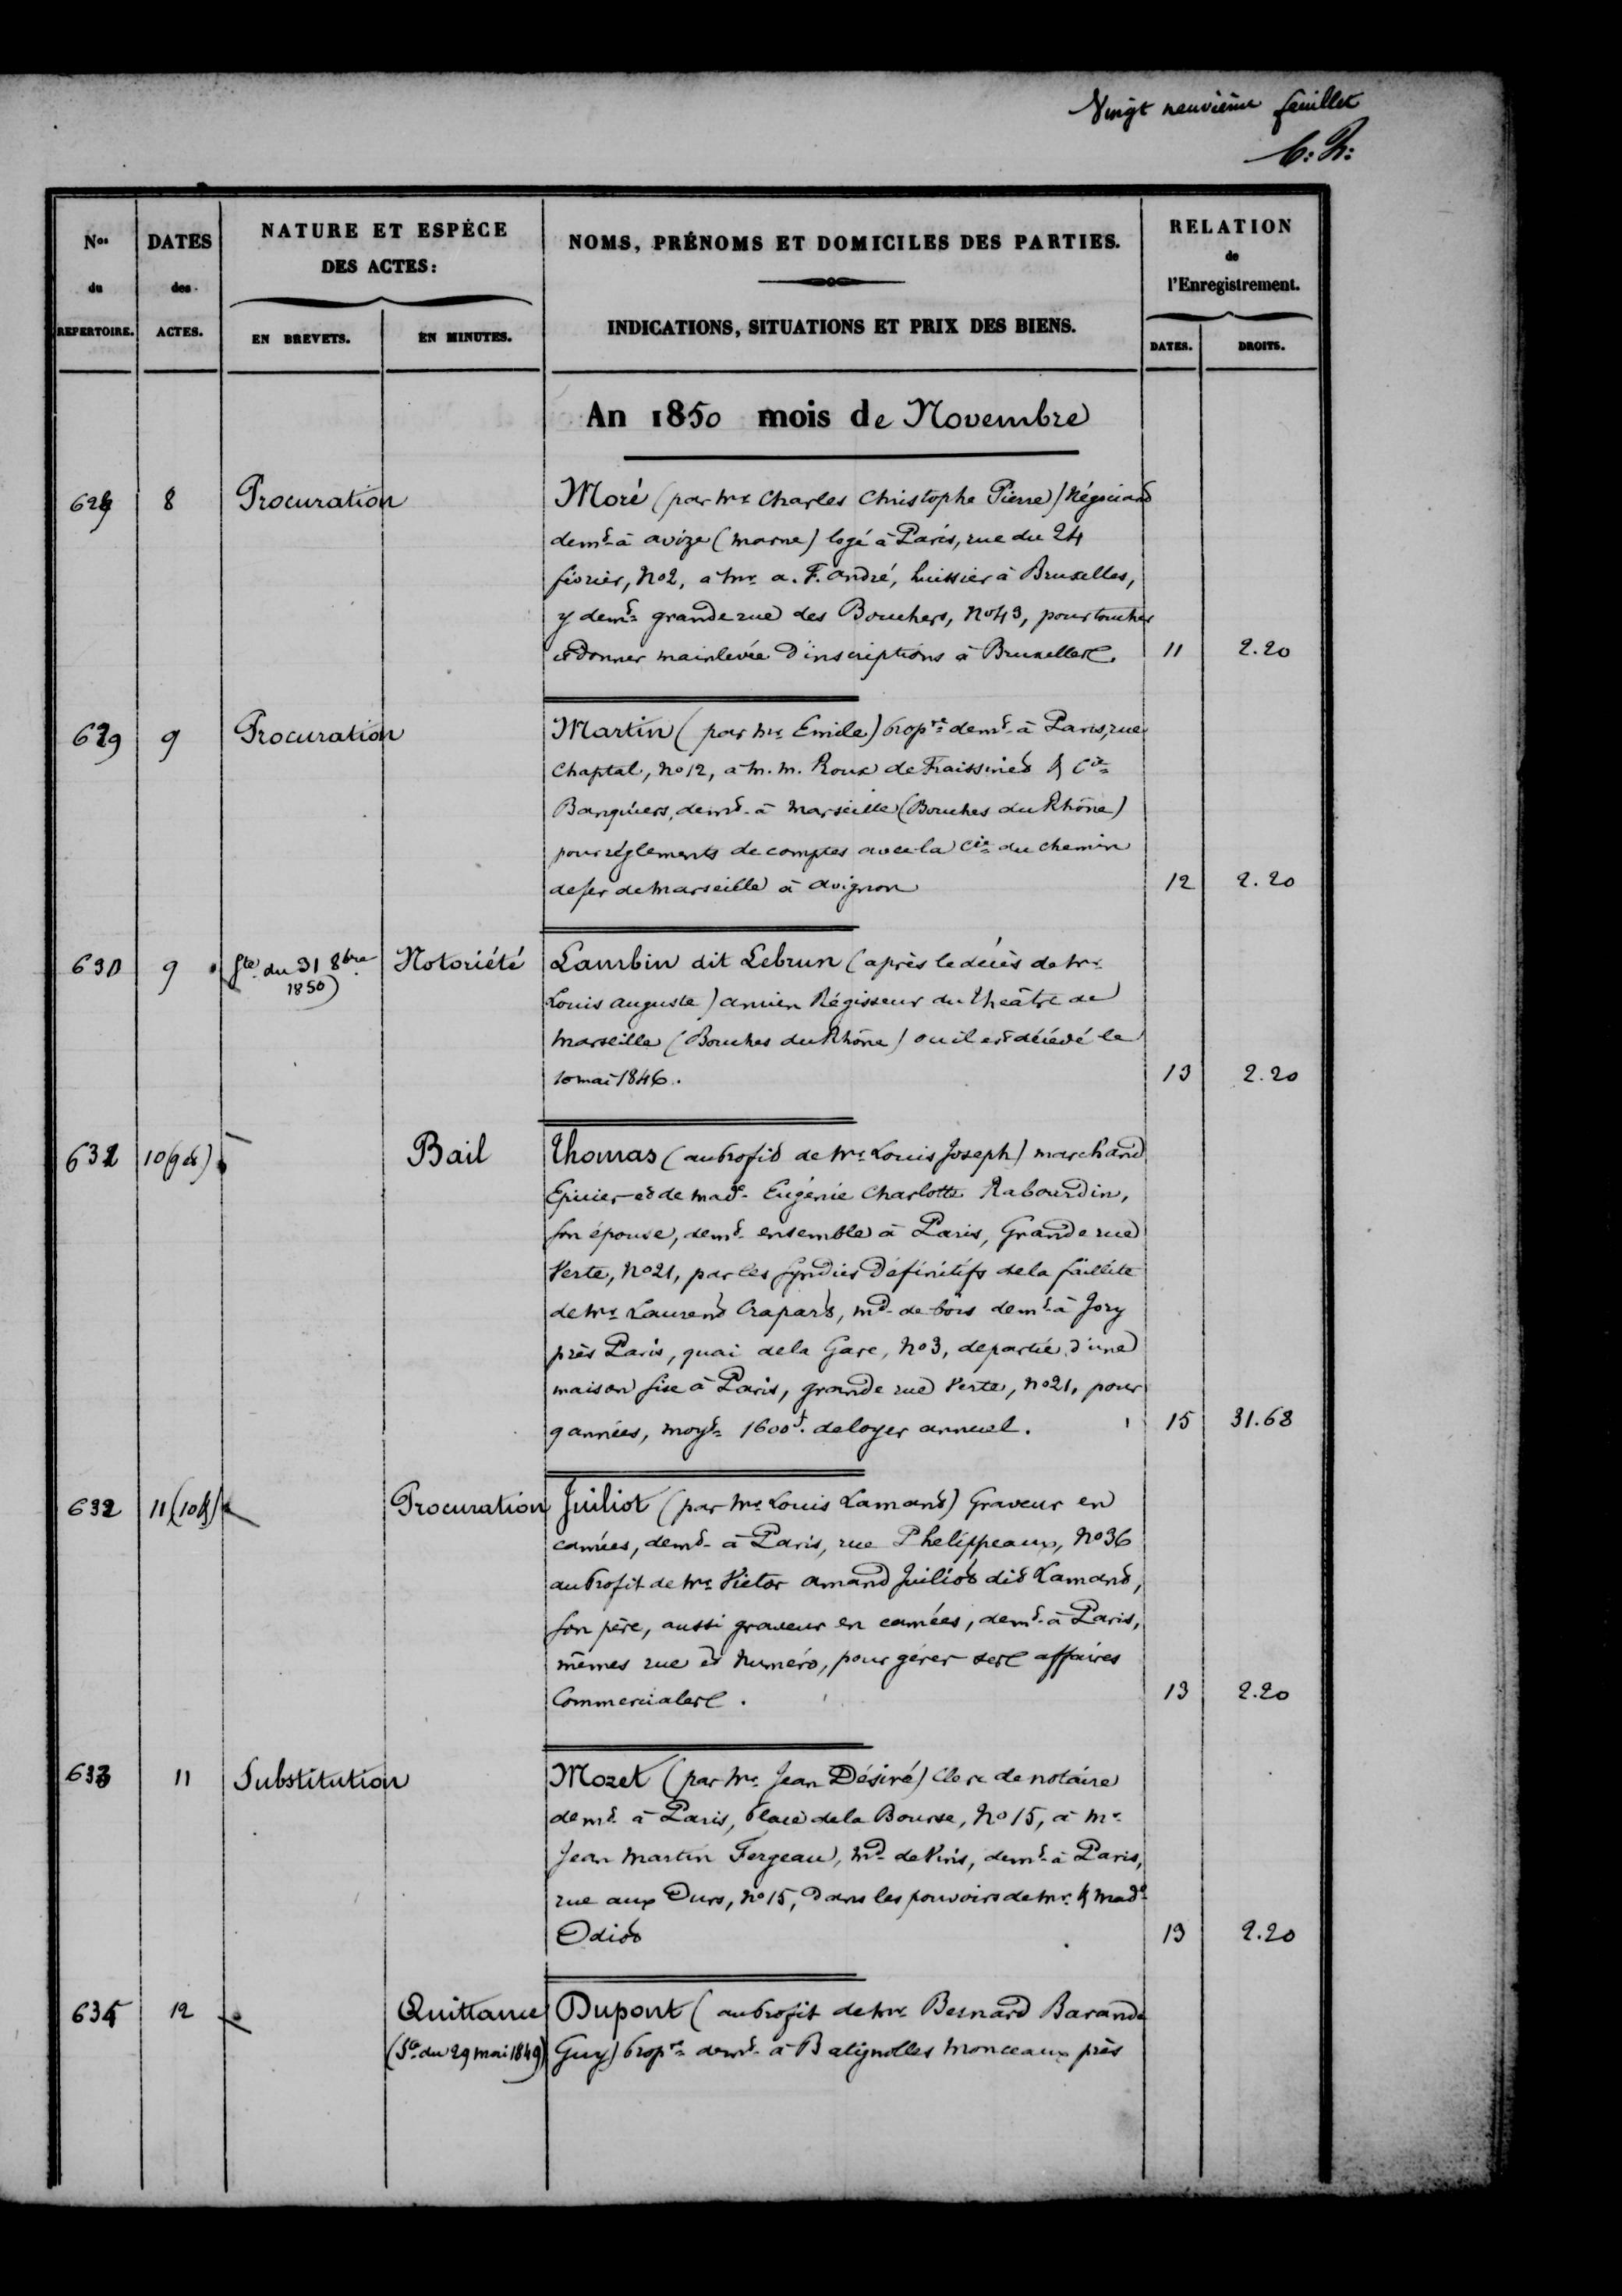 Vingt neuvième feuillet
C: R:
Nos du REPERTOIRE.
DATES des ACTES.
NATURE ET ESPÈCE DES ACTES:
EN BREVETS.
EN MINUTES.
NOMS, PRÉNOMS ET DOMICILES DES PARTIES.
INDICATIONS, SITUATIONS ET PRIX DES BIENS.
RELATION de l'Enregistrement.
DATES.
DROITS.
An 1850 mois de Novembre
628 8 Procuration Moré (par Mr. Charles Christophe Pierre) Négociant
demt. à avize (marne) logé à Paris, rue du 24
février, No 2, à Mr. a. F. andré, huissier à Bruxelles,
y demt. grande rue des Bouchers, No 43, pour toucher
et donner mainlevée d'inscriptions à Bruxelles. 11 2.20
629 9 Procuration Martin (par Mr. Emile) propre. demt. à Paris, rue
Chaptal, No 12, à M. M. Roux de Fraissinet & Cie.
Banquiers, demt. à Marseille (Bouches du Rhône)
pour réglements de comptes avec la Cie. du chemin
de fer de Marseille à avignon 12 2.20
630 9 Ste. du 31 8bre Notoriété Lambin dit Lebrun (après le décès de Mr.
1850) Louis auguste) ancien Régisseur du théâtre de
Marseille (Bouches du Rhône) où il est décédé le
10 mai 1846. 13 2.20
631 10 (9 & ) Bail Thomas (au profit de Mr. Louis Joseph) marchand
Epicier et de made. Eugénie Charlotte Rabourdin,
son épouse, demt. ensemble à Paris, Grande rue
Verte, No 21, par les syndics définitifs de la faillite
de Mr. Laurent Crapard, md. de bois demt. à Jvry
près Paris, quai de la Gare, No 3, de partie d'une
maison sise à Paris, grande rue Verte, No 21, pour
9 années, moyt. 1600f. de loyer annuel. 15 31.68
632 11 (10 &) Procuration Juiliot (par Mr. Louis Lamand) Graveur en
camées, demt. à Paris, rue Phelippeaux, No 36
au profit de Mr. Victor amand Juiliot dit Lamand,
son père, aussi graveur en camées, demt. à Paris,
mêmes rue et numéro, pour gérer ses affaires
Commerciales. 13 2.20
633 11 Substitution Mozet (par Mr. Jean Désiré) Clerc de notaire
demt. à Paris, place de la Bourse, No 15, à Mr.
Jean Martin Fergeau, Md. de Vins, demt. à Paris,
rue aux Ours, No 15, dans les pouvoirs de Mr. & made.
Odiot 13 2.20
634 12 Quittance Dupont (au profit de Mr. Bernard Barande
(Ste. du 29 mai 1849) Guy) propre. demt. à Batignolles Monceaux près